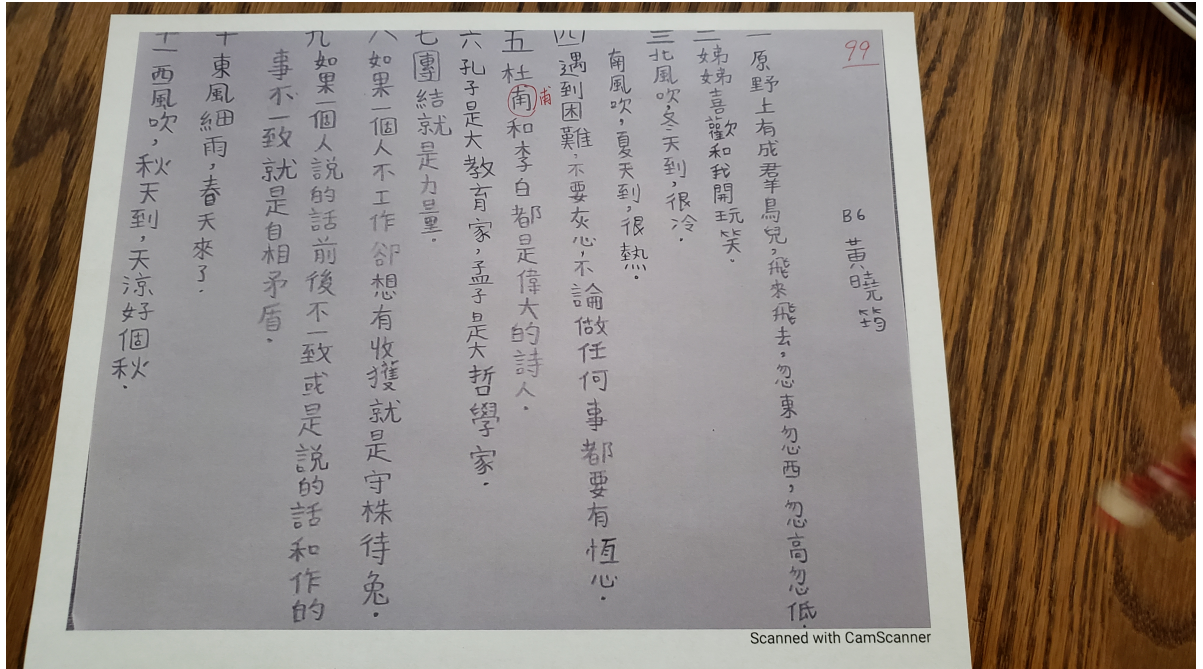 99
B6 黃曉筠
一 原野上有成羣鳥兒，飛來飛去，忽東忽西，忽高忽低.
二 娣娣喜歡和我開玩笑.
三 北風吹，冬天到，很冷.
南風吹，夏天到，很熱.
四 遇到困難，不要灰心，不論做任何事都要有恆心.
五 杜甫和李白都是偉大的詩人.
甫
六 孔子是大教育家，孟子是大哲學家.
七 團結就是力量.
八 如果一個人不工作卻想有收獲就是守株待兔.
九 如果一個人說的話前後不一致或是說的話和作的
事不一致就是自相矛盾.
十 東風細雨，春天來了.
十一 西風吹，秋天到，天涼好個秋.
Scanned with CamScanner